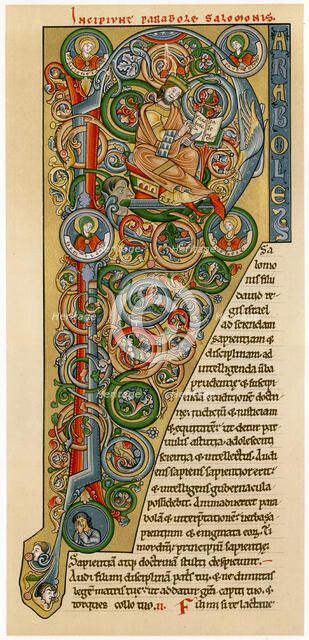 Incipiunt parabole Salomonis
P ARABOLES
Sa
lomo
nis filii
dauid re
gis israel
ad sciendam
sapientiam &
disciplinam, ad
intelligenda uba
prudentie & suscipi
endā eruditionē doctri
nę, judiciū & justiciam
& equitatem: ut detur par
uulis astutia, adolescenti
scientia & intellectus. Audi
ens sapiens sapientior erit:
& intelligens gubernacula
possidebit. Animaduertet para
bolam & interpretationē, uerba sa
pientium & enigmata eoꝝ. Ti
mor dn̄i principiū sapientie.
Sapientiam atqꝫ doctrinā stulti despiciunt.
Audi fili mi disciplinā patris tui, & ne dimittas
legem matris tuę: ut addatur grā capiti tuo, &
torques collo tuo. ii. Fili mi si te lactaue
heritage images